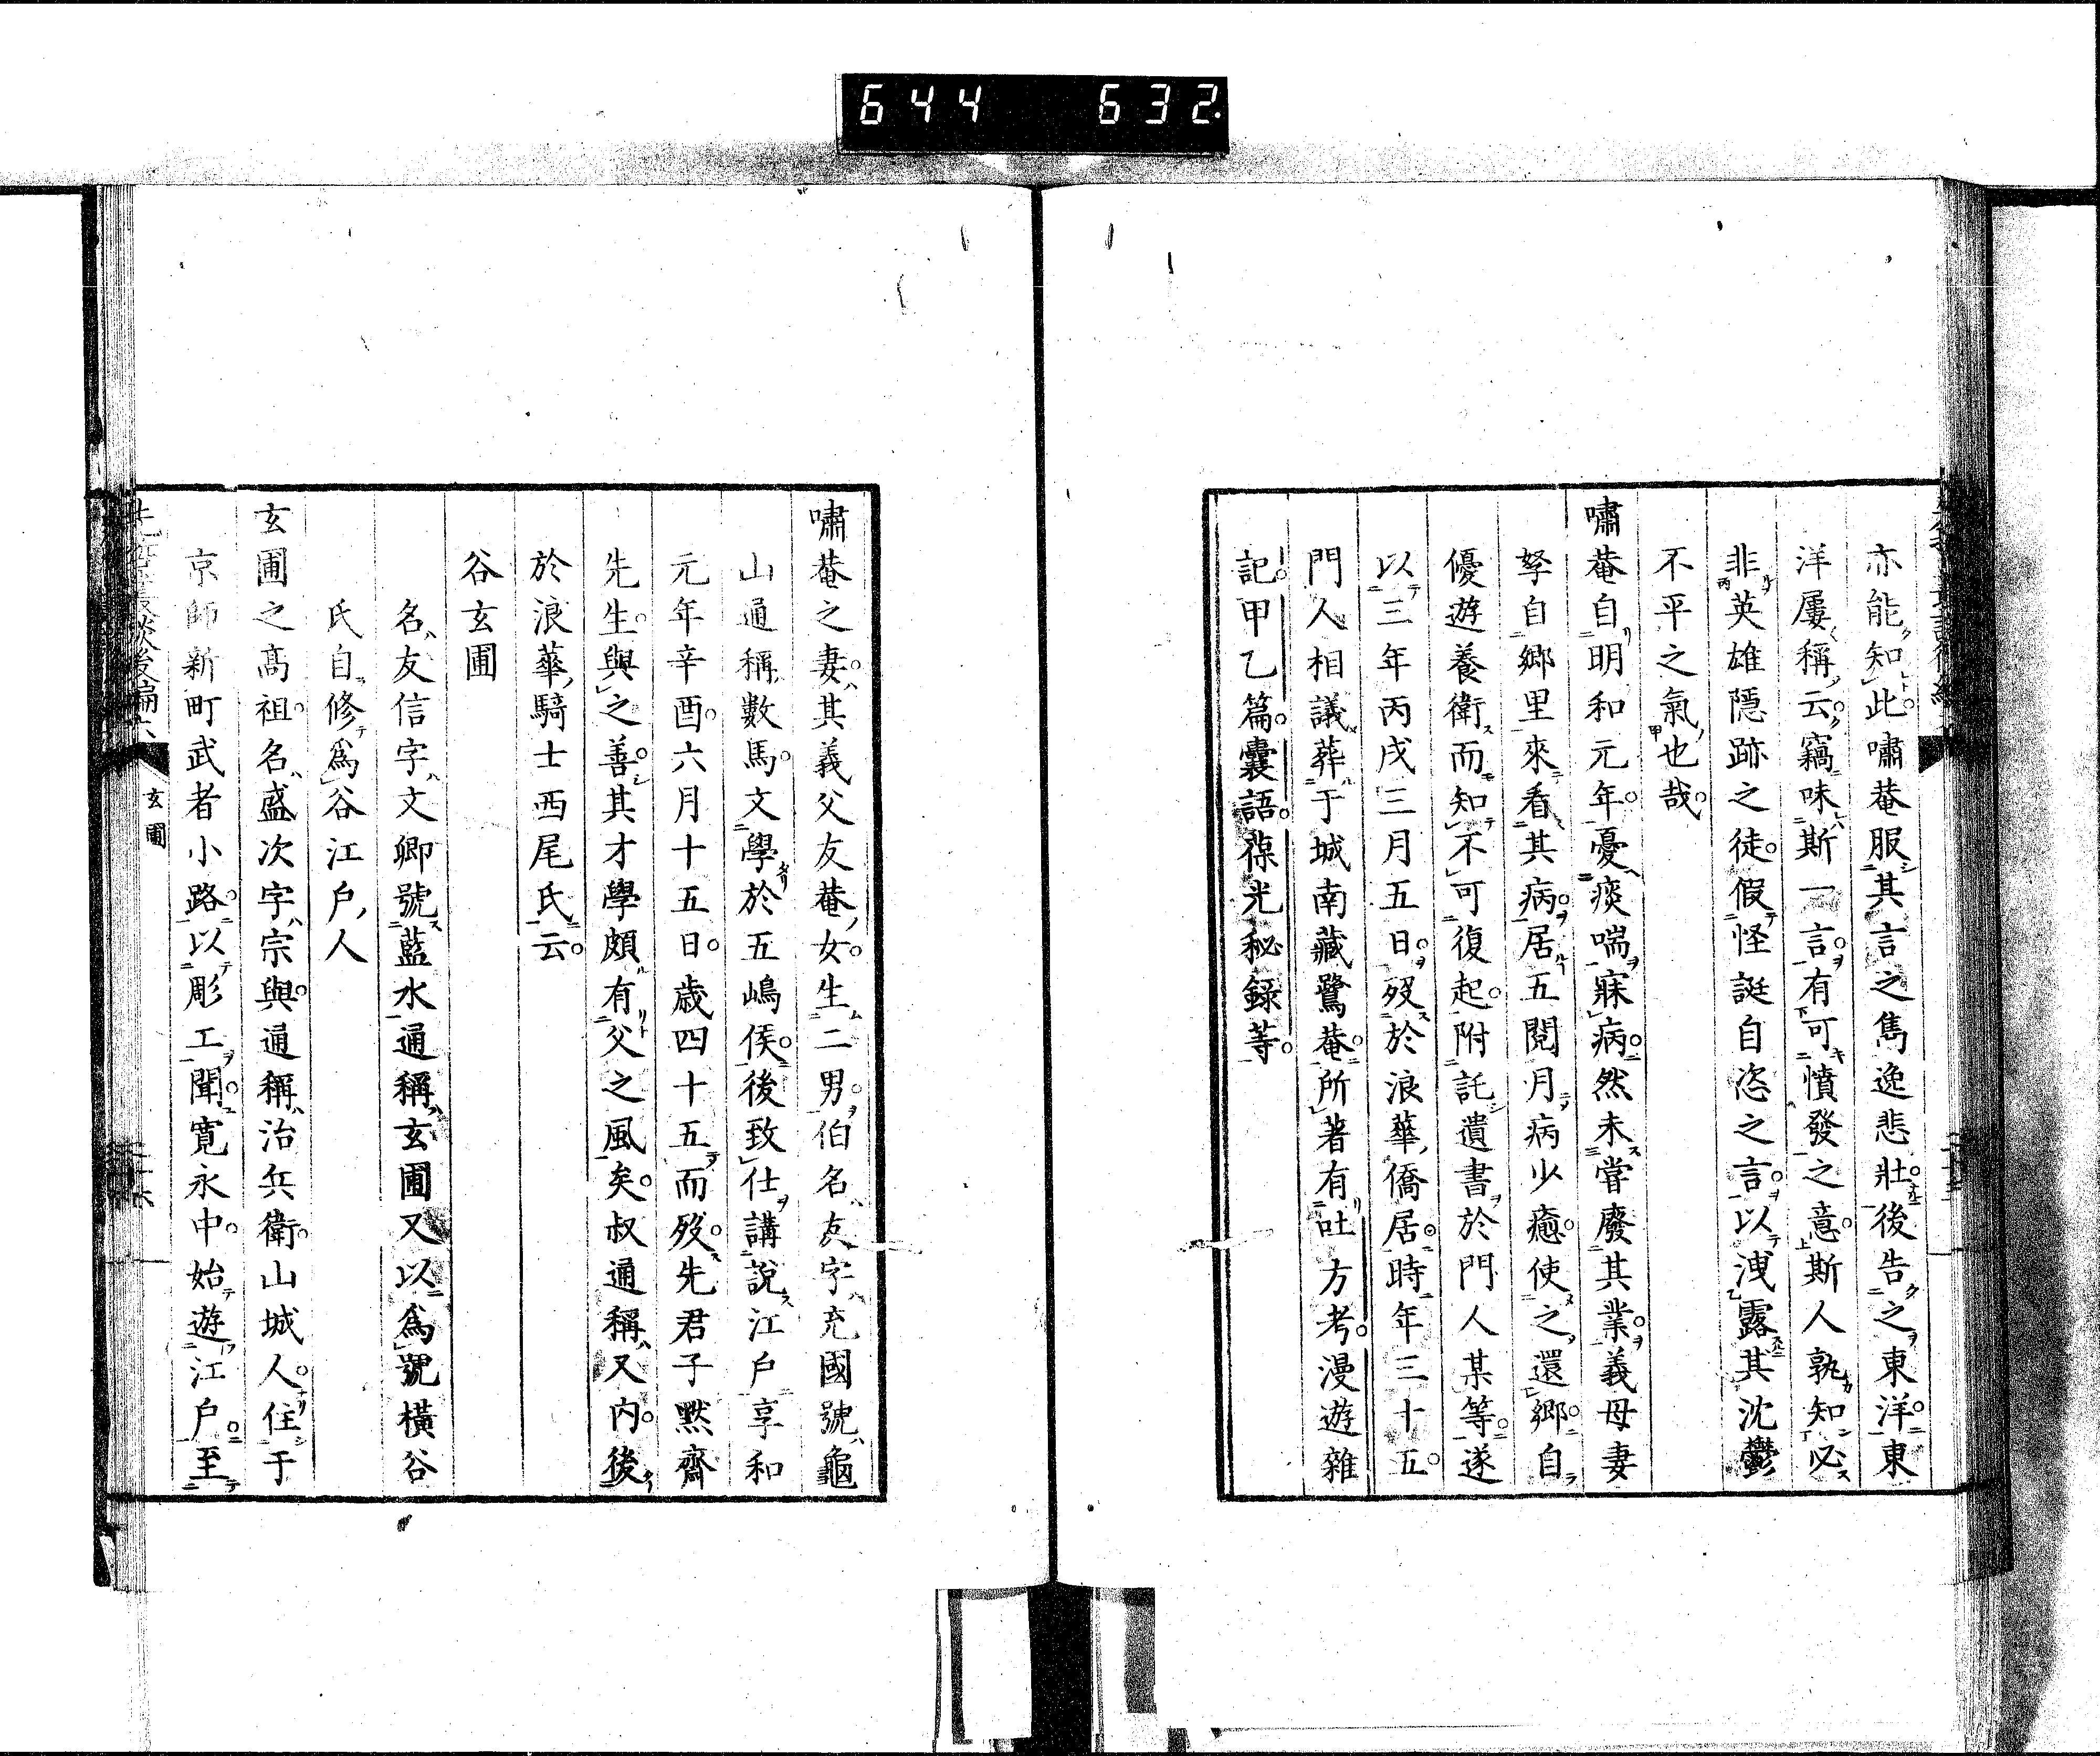 644 632.
亦能知此。嘯菴服其言之雋逸悲壯。後告之東洋。東
洋屢稱云。竊味斯一言。有可憤發之意。斯人孰知必
非英雄隱跡之徒。假怪誕自恣之言。以洩露其沈鬱
不平之氣也哉。
嘯菴自明和元年。憂痰喘寐病。然未甞廢其業。義母妻
孥自鄉里來看其病。居五閱月病少癒。使之還鄉。自
優遊養衛而知不可復起。附託遺書於門人某等。遂
以三年丙戌三月五日。歿於浪華僑居。時年三十五。
門人相議葬于城南藏鷺菴。所著有吐方考。漫遊雜
記。甲乙篇。囊語。葆光秘録等。
嘯菴之妻。其義父友菴女。生二男。伯名友字充國號龜
山通稱數馬。文學於五嶋侯。後致仕講說江戶享和
元年辛酉。六月十五日。歲四十五而歿。先君子默齋
先生。與之善。其才學頗有父之風矣。叔通稱又内。後
於浪華騎士西尾氏云。
谷玄圃
名友信字文卿號藍水通稱玄圃又以爲號橫谷
氏自修爲谷江戶人
玄圃之高祖。名盛次字宗與。通稱治兵衛。山城人。住于
京師新町武者小路。以彫工聞。寬永中。始遊江戶。至
玄圃